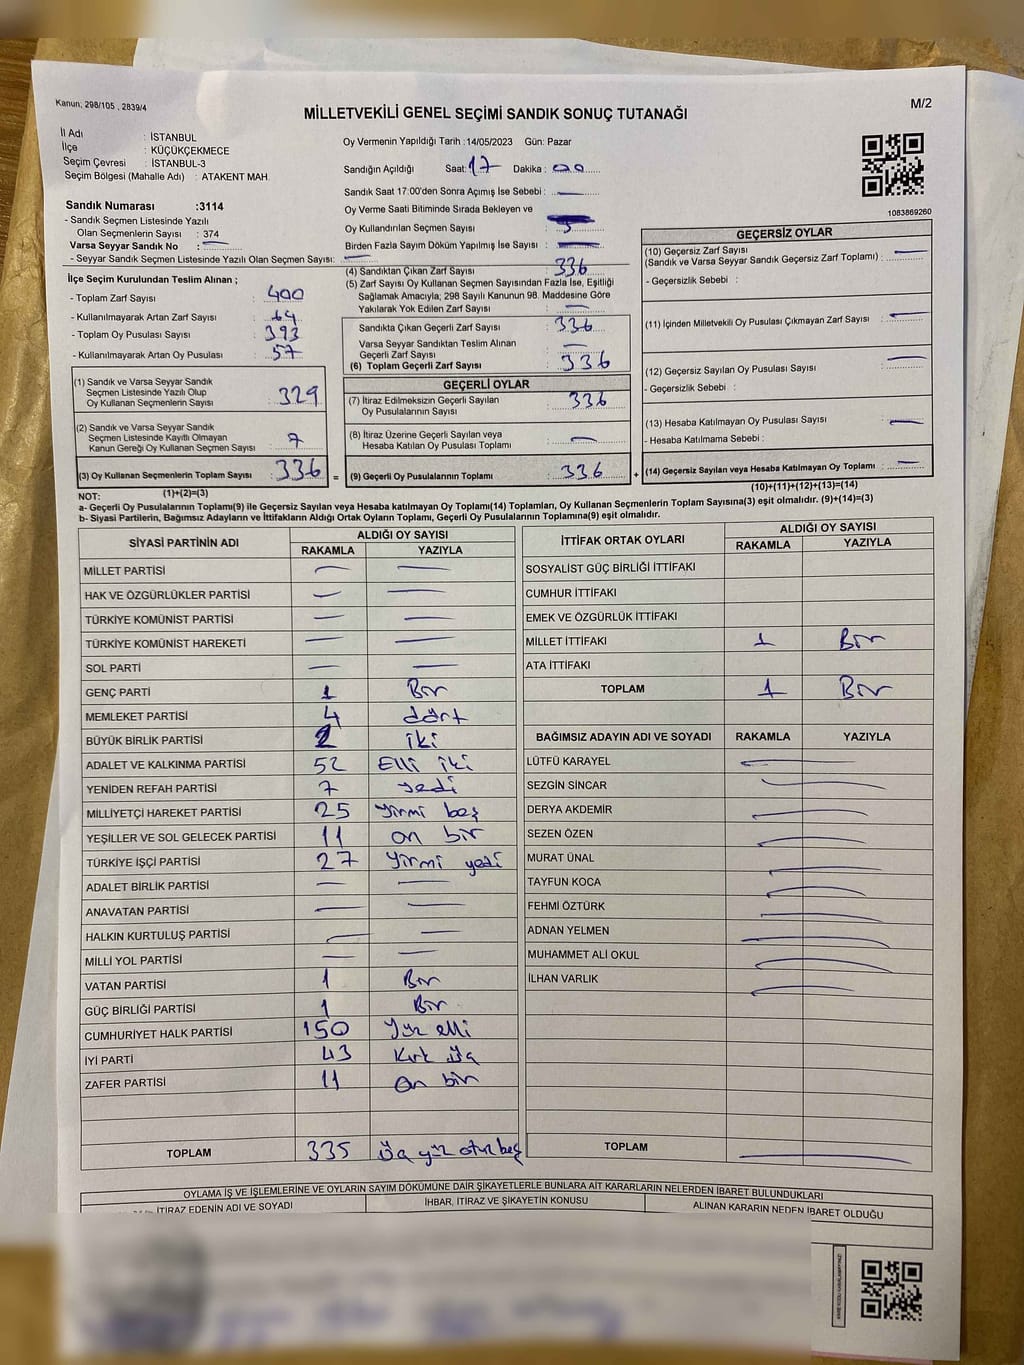 Kanun; 298/105 , 2839/4
M/2
MİLLETVEKİLİ GENEL SEÇİMİ SANDIK SONUÇ TUTANAĞI
İl Adı : İSTANBUL
İlçe : KÜÇÜKÇEKMECE
Seçim Çevresi : İSTANBUL-3
Seçim Bölgesi (Mahalle Adı) : ATAKENT MAH.
Sandık Numarası :3114
- Sandık Seçmen Listesinde Yazılı
Olan Seçmenlerin Sayısı : 374
Varsa Seyyar Sandık No : —
- Seyyar Sandık Seçmen Listesinde Yazılı Olan Seçmen Sayısı: —
Oy Vermenin Yapıldığı Tarih :14/05/2023 Gün: Pazar
Sandığın Açıldığı Saat: 17 Dakika : 00
Sandık Saat 17:00'den Sonra Açımış İse Sebebi : —
Oy Verme Saati Bitiminde Sırada Bekleyen ve
Oy Kullandırılan Seçmen Sayısı :
Birden Fazla Sayım Döküm Yapılmış İse Sayısı : —
1083869260
İlçe Seçim Kurulundan Teslim Alınan ;
- Toplam Zarf Sayısı : 400
- Kullanılmayarak Artan Zarf Sayısı : 64
- Toplam Oy Pusulası Sayısı : 393
- Kullanılmayarak Artan Oy Pusulası : 57
(1) Sandık ve Varsa Seyyar Sandık
Seçmen Listesinde Yazılı Olup
Oy Kullanan Seçmenlerin Sayısı : 329
(2) Sandık ve Varsa Seyyar Sandık
Seçmen Listesinde Kayıtlı Olmayan
Kanun Gereği Oy Kullanan Seçmen Sayısı : 7
(3) Oy Kullanan Seçmenlerin Toplam Sayısı : 336 =
(1)+(2)=(3)
(4) Sandıktan Çıkan Zarf Sayısı : 336
(5) Zarf Sayısı Oy Kullanan Seçmen Sayısından Fazla İse, Eşitliği
Sağlamak Amacıyla; 298 Sayılı Kanunun 98. Maddesine Göre
Yakılarak Yok Edilen Zarf Sayısı : —
Sandıkta Çıkan Geçerli Zarf Sayısı : 336
Varsa Seyyar Sandıktan Teslim Alınan
Geçerli Zarf Sayısı : —
(6) Toplam Geçerli Zarf Sayısı : 336
GEÇERLİ OYLAR
(7) İtiraz Edilmeksizin Geçerli Sayılan
Oy Pusulalarının Sayısı : 336
(8) İtiraz Üzerine Geçerli Sayılan veya
Hesaba Katılan Oy Pusulası Toplamı : —
(9) Geçerli Oy Pusulalarının Toplamı : 336 +
GEÇERSİZ OYLAR
(10) Geçersiz Zarf Sayısı
(Sandık ve Varsa Seyyar Sandık Geçersiz Zarf Toplamı) : —
- Geçersizlik Sebebi :
(11) İçinden Milletvekili Oy Pusulası Çıkmayan Zarf Sayısı : —
(12) Geçersiz Sayılan Oy Pusulası Sayısı : —
- Geçersizlik Sebebi :
(13) Hesaba Katılmayan Oy Pusulası Sayısı : —
- Hesaba Katılmama Sebebi :
(14) Geçersiz Sayılan veya Hesaba Katılmayan Oy Toplamı : —
(10)+(11)+(12)+(13)=(14)
NOT:
a- Geçerli Oy Pusulalarının Toplamı(9) ile Geçersiz Sayılan veya Hesaba katılmayan Oy Toplamı(14) Toplamları, Oy Kullanan Seçmenlerin Toplam Sayısına(3) eşit olmalıdır. (9)+(14)=(3)
b- Siyasi Partilerin, Bağımsız Adayların ve İttifakların Aldığı Ortak Oyların Toplamı, Geçerli Oy Pusulalarının Toplamına(9) eşit olmalıdır.
SİYASİ PARTİNİN ADI ALDIĞI OY SAYISI
RAKAMLA YAZIYLA
MİLLET PARTİSİ — —
HAK VE ÖZGÜRLÜKLER PARTİSİ — —
TÜRKİYE KOMÜNİST PARTİSİ — —
TÜRKİYE KOMÜNİST HAREKETİ — —
SOL PARTİ — —
GENÇ PARTİ 1 Bir
MEMLEKET PARTİSİ 4 dört
BÜYÜK BİRLİK PARTİSİ 2 iki
ADALET VE KALKINMA PARTİSİ 52 Elli iki
YENİDEN REFAH PARTİSİ 7 yedi
MİLLİYETÇİ HAREKET PARTİSİ 25 yirmi beş
YEŞİLLER VE SOL GELECEK PARTİSİ 11 on bir
TÜRKİYE İŞÇİ PARTİSİ 27 yirmi yedi
ADALET BİRLİK PARTİSİ — —
ANAVATAN PARTİSİ — —
HALKIN KURTULUŞ PARTİSİ — —
MİLLİ YOL PARTİSİ — —
VATAN PARTİSİ 1 Bir
GÜÇ BİRLİĞİ PARTİSİ 1 Bir
CUMHURİYET HALK PARTİSİ 150 Yüz elli
İYİ PARTİ 43 Kırk üç
ZAFER PARTİSİ 11 on bir
TOPLAM 335 üç yüz otuz beş
İTTİFAK ORTAK OYLARI ALDIĞI OY SAYISI
RAKAMLA YAZIYLA
SOSYALİST GÜÇ BİRLİĞİ İTTİFAKI
CUMHUR İTTİFAKI
EMEK VE ÖZGÜRLÜK İTTİFAKI
MİLLET İTTİFAKI 1 Bir
ATA İTTİFAKI
TOPLAM 1 Bir
BAĞIMSIZ ADAYIN ADI VE SOYADI RAKAMLA YAZIYLA
LÜTFÜ KARAYEL —
SEZGİN SİNCAR —
DERYA AKDEMİR —
SEZEN ÖZEN —
MURAT ÜNAL —
TAYFUN KOCA —
FEHMİ ÖZTÜRK —
ADNAN YELMEN —
MUHAMMET ALİ OKUL —
İLHAN VARLIK —
TOPLAM —
OYLAMA İŞ VE İŞLEMLERİNE VE OYLARIN SAYIM DÖKÜMÜNE DAİR ŞİKAYETLERLE BUNLARA AİT KARARLARIN NELERDEN İBARET BULUNDUKLARI
İTİRAZ EDENİN ADI VE SOYADI İHBAR, İTİRAZ VE ŞİKAYETİN KONUSU ALINAN KARARIN NEDEN İBARET OLDUĞU